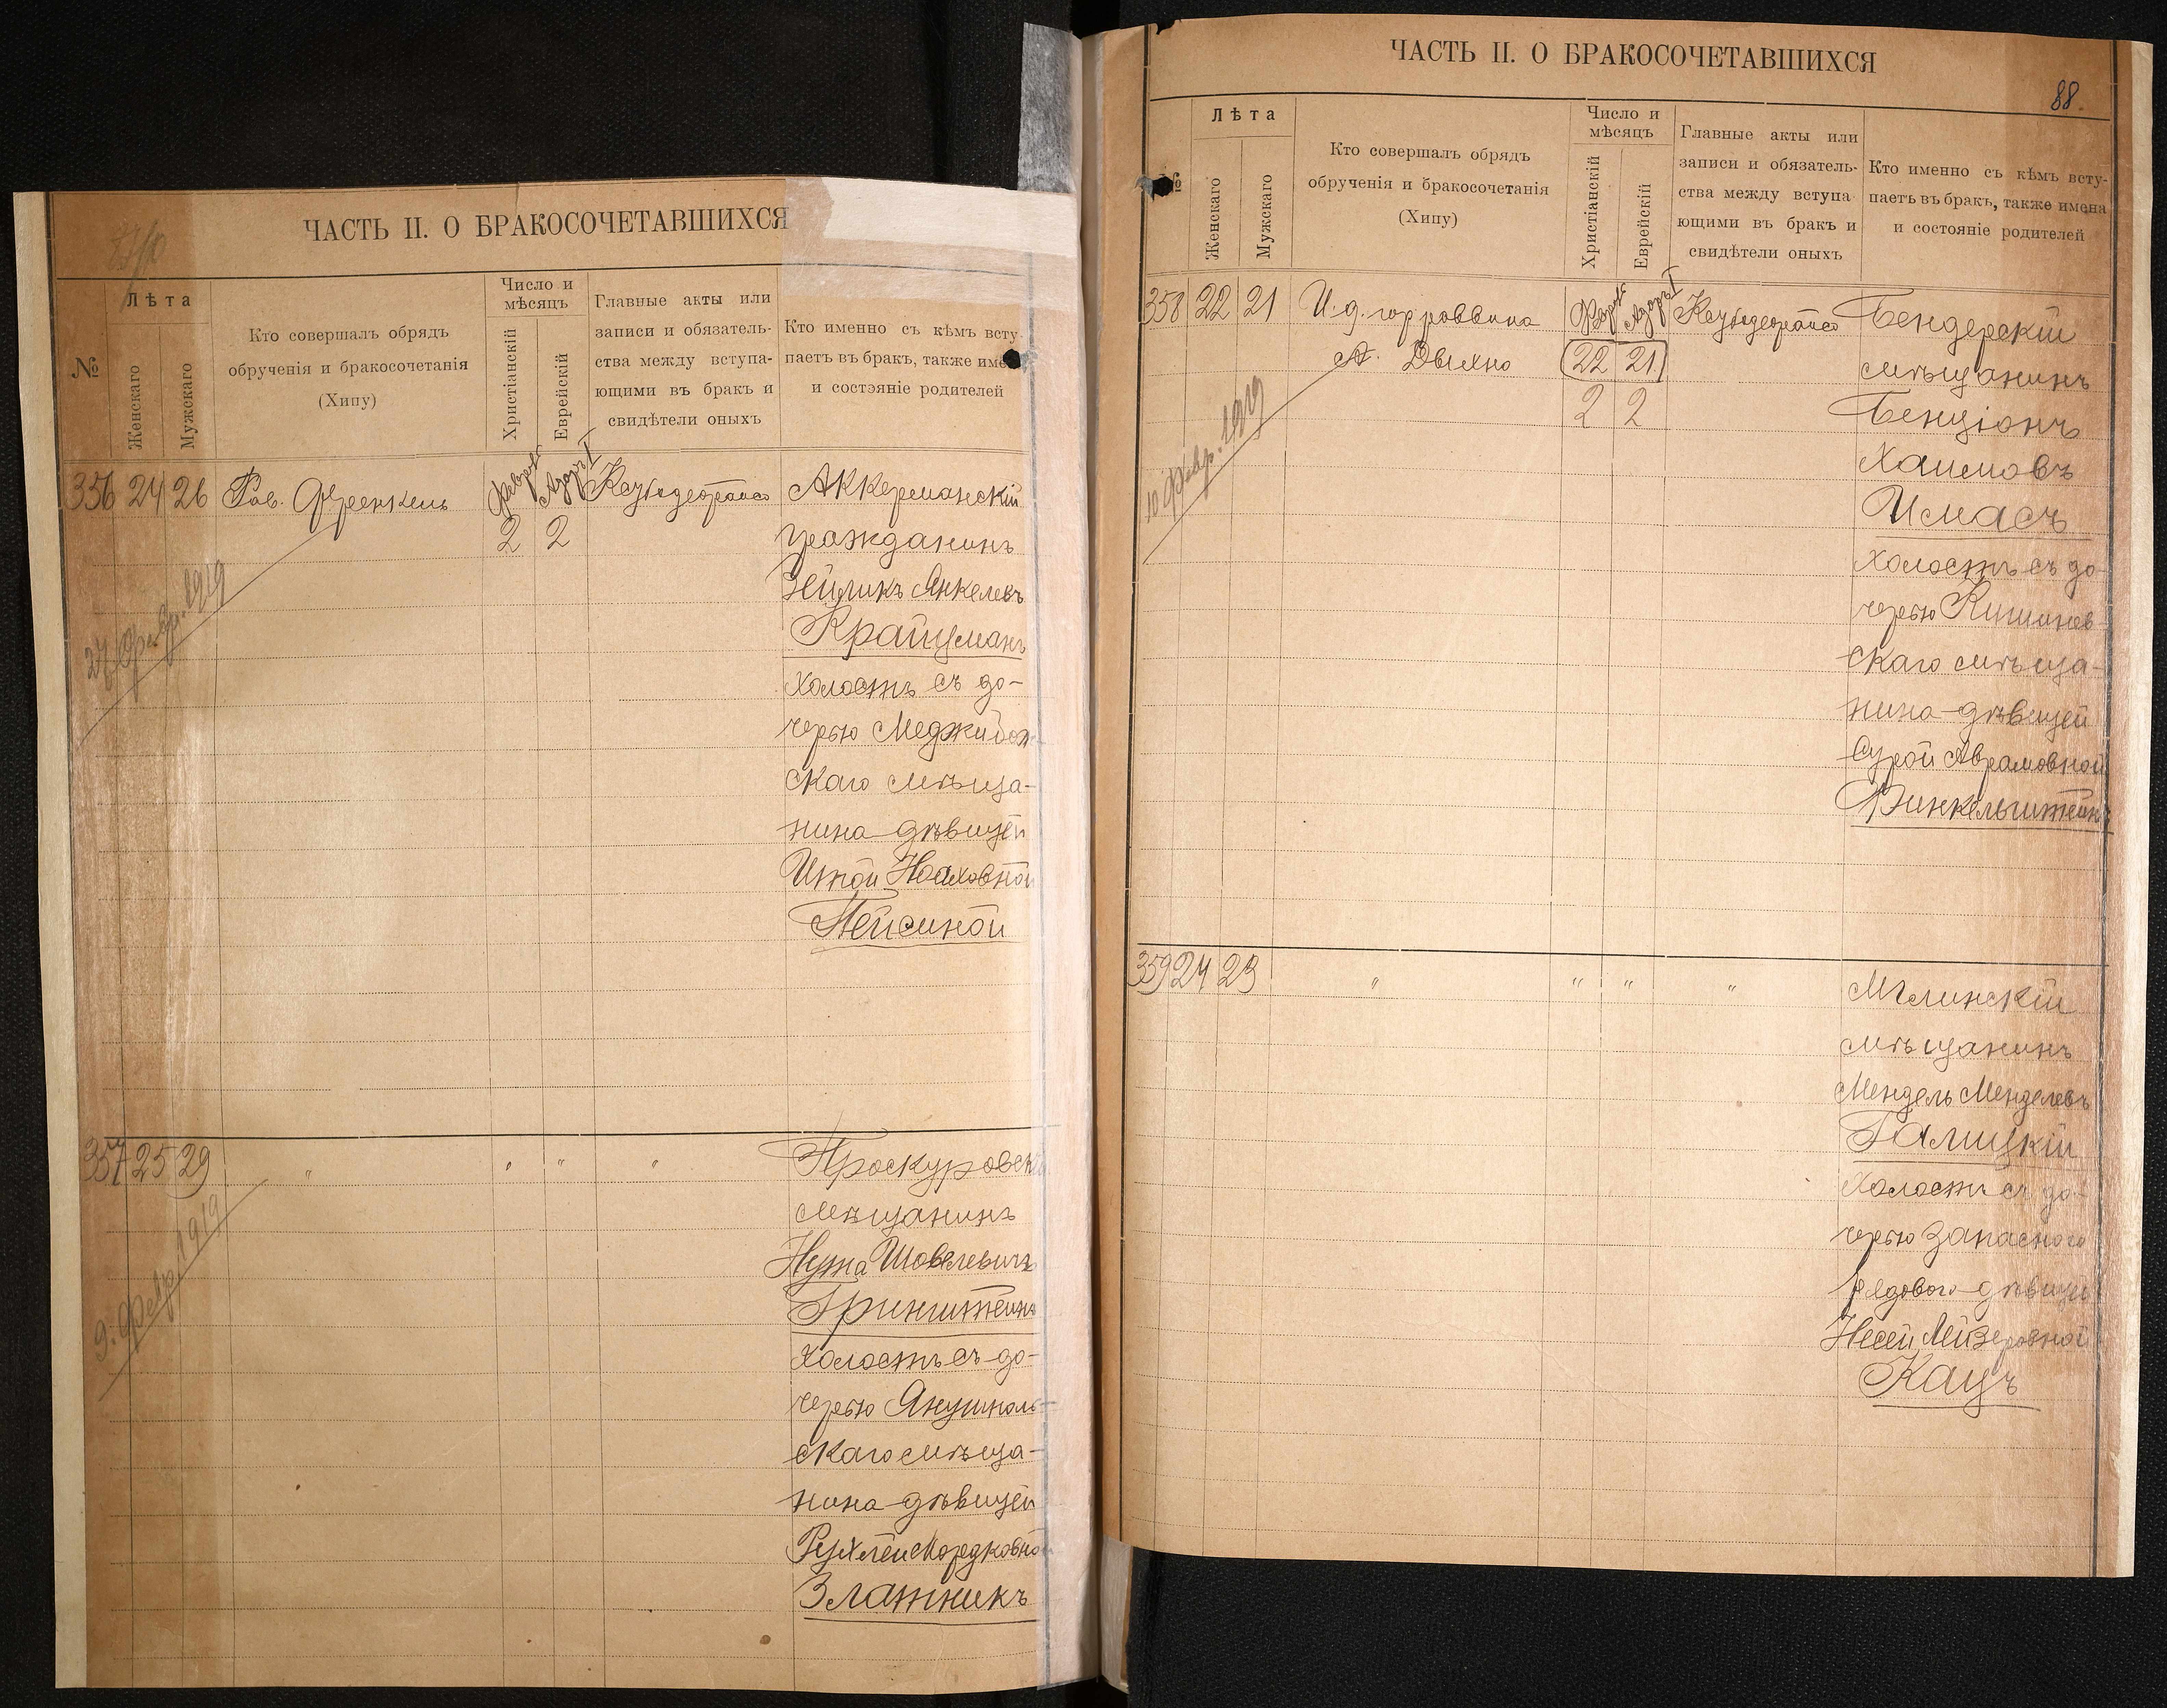 ЧАСТЬ II. О БРАКОСОЧЕТАВШИХСЯ
№
Лѣта
Женскаго
Мужскаго
Кто совершалъ обрядъ
обрученія и бракосочетанія
(Хипу)
Число и
мѣсяцъ
Христіанскій
Еврейскій
Главные акты или
записи и обязатель-
ства между вступа-
ющими въ бракъ и
свидѣтели оныхъ
Кто именно съ кѣмъ всту
паетъ въ бракъ, также име
и состояніе родителей
356 24 26 Рав. Френкель
2 2
Аккерманскій
гражданинъ
Зейликъ Янкелевъ
Крайцманъ
холостъ съ до-
черью Меджибож
скаго мѣща-
нина дѣвицей
Итой Ноаховной
Пейсиной
27 Февр. 1919
357 25 29 " " " "
Проскуровскій
мѣщанинъ
Нута Шовелевичъ
Гринштейнъ
холостъ съ до-
черью Янушполь-
скаго мѣща-
нина дѣвицей
Рухлей Мордковной
Златникъ
9. Февр. 1919
ЧАСТЬ II. О БРАКОСОЧЕТАВШИХСЯ
88.
№
Лѣта
Женскаго
Мужскаго
Кто совершалъ обрядъ
обрученія и бракосочетанія
(Хипу)
Число и
мѣсяцъ
Христіанскій
Еврейскій
Главные акты или
записи и обязатель-
ства между вступа
ющими въ бракъ и
свидѣтели оныхъ
Кто именно съ кѣмъ всту-
паетъ въ бракъ, также имена
и состояніе родителей
358 22 21 И. д. гор раввина
А. Дыхно
22 21
2 2
Бендерскій
мѣщанинъ
Бенціонъ
Хаимовъ
Имасъ
холостъ съ до-
черью Кишинев-
скаго мѣща-
нина дѣвицей
Сурой Аврамовной
Финкельштейнъ
10 Февр. 1919
359 24 23 " " " "
Мглинскій
мѣщанинъ
Мендель Менделевъ
Галицкій
холостъ съ до-
черью запаснаго
рядового дѣвицей
Несей Лейзеровной
Кацъ